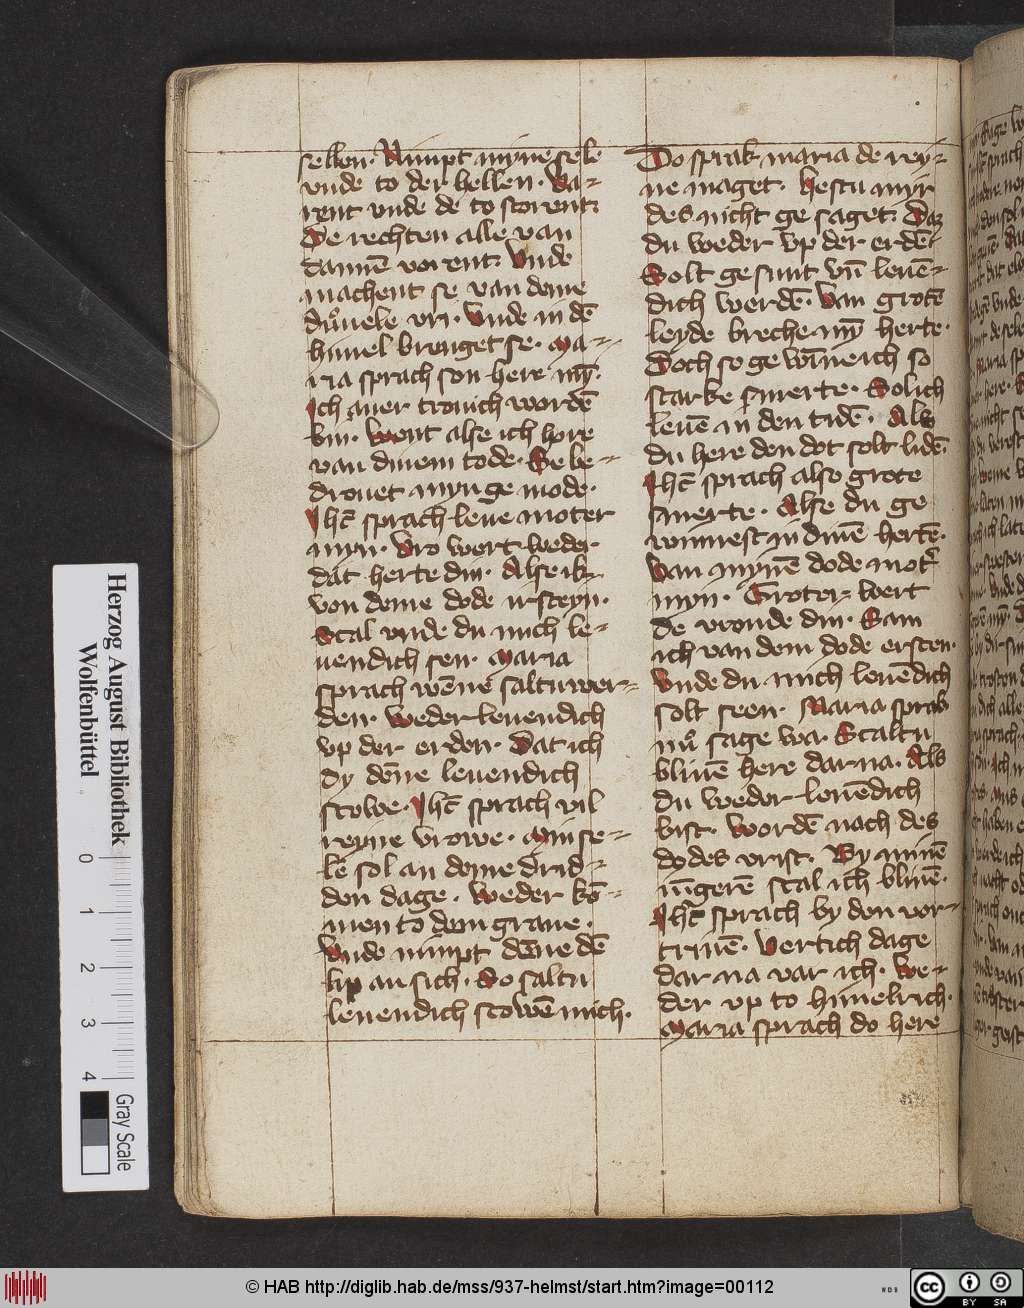 sellen. Nimpt myne sele
vnde to der hellen. Va-
rent vnde de to storent.
De rechten alle van
dannē vorent. Vnde
machent se van deme
duͦuele vri. Vnde in dē
himel brenget se. Ma-
ria sprach son here mȳ.
Ich auer trouich wordē
bin. Went alse ich hore
van dinem tode. Se be-
drouet myn ge mode.
Ihc̄ sprach leue moter
myn. Vro wert weder
dat herte din. Alse ik
von deme dode irsteyn.
Scal vnde du mich le-
uendich sen. Maria
sprach wēne saltu wer-
den. Weder leuendich
vp der erden. Dat ich
dy dēne leuendich
scowe. Ihc̄ sprach vil
reyne vrowe. Min se-
le sol an deme drid-
den dage. Weder kō-
men to dem graue.
Vnde nimpt dēne dē
lip an sich. So saltu
leuendich scowē mich.
Do sprak maria de rey-
ne maget. Hestu myr
des nicht ge saget. Daz
du weder vp der erdē
Solt gesunt vn̄ leuē-
dich werdē. Van grotē
leyde breche mȳ herte.
Doch so ge wīne ich so
starke smerte. Sol ich
leuē in den tidē. Als
du here den dot solt lidē.
Ihc̄ sprach also grote
smerte. Alse du ge
winnest in dinē hertē.
Van mynē dode mot᷑
myn. Groter wert
de vronde din. Sam
ich van dem dode ersten.
Vnde du mich leuēdich
solt seen. Maria sprak
nuͦ sage wa. Scaltu
bliuē here dar na. Als
du weder leuēdich
bist. Wordē nach des
dodes vrist. By minē
iūgerē scal ich bliuē.
Ihc̄ sprach by den vor-
triuē. Vertich dage
dar na var ich. We-
der vp to himelrich.
Maria sprach do here
Herzog August Bibliothek
Wolfenbüttel
0 1 2 3 4
Gray Scale
© HAB http://diglib.hab.de/mss/937-helmst/start.htm?image=00112
WDB
cc BY SA